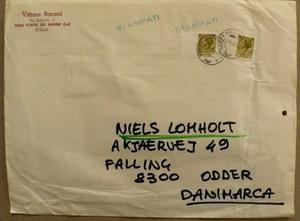 Vittore Baroni
55042 FORTE DEI MARMI (Lu)
ITALIA
STAMPATI STAMPATI
NIELS LOMHOLT
AKJAERVEJ 49
FALLING
8300 ODDER
DANIMARCA